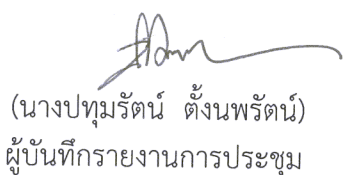 (นางปทุมรัตน์ ตั้งนพรัตน์)
ผู้บันทึกรายงานการประชุม